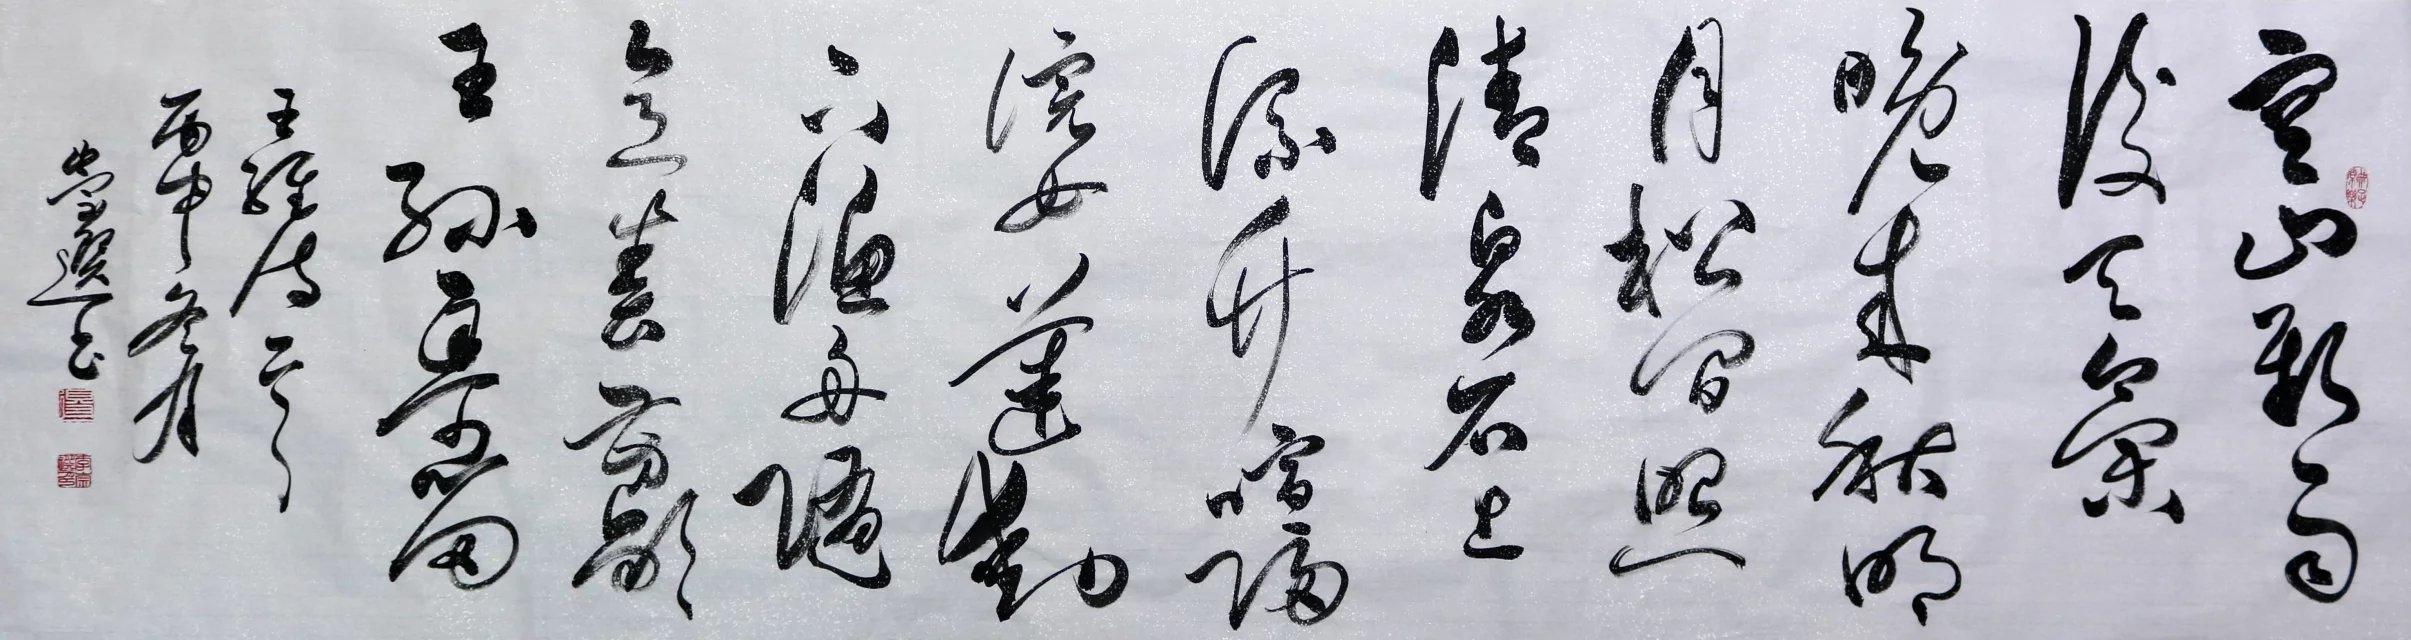 空山新雨
後天氣
晚来秋明
月松间照
清泉石上
流竹喧歸
浣女蓮動
下漁舟隨
意春芳歇
王孫自可留
王維诗一首
丙申冬月
崇選书